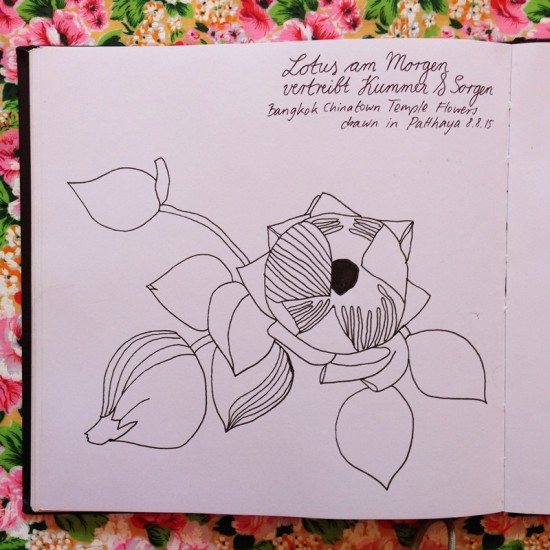 Lotus am Morgen
vertreibt Kummer & Sorgen
Bangkok Chinatown Temple Flowers
drawn in Patthaya 8.8.15